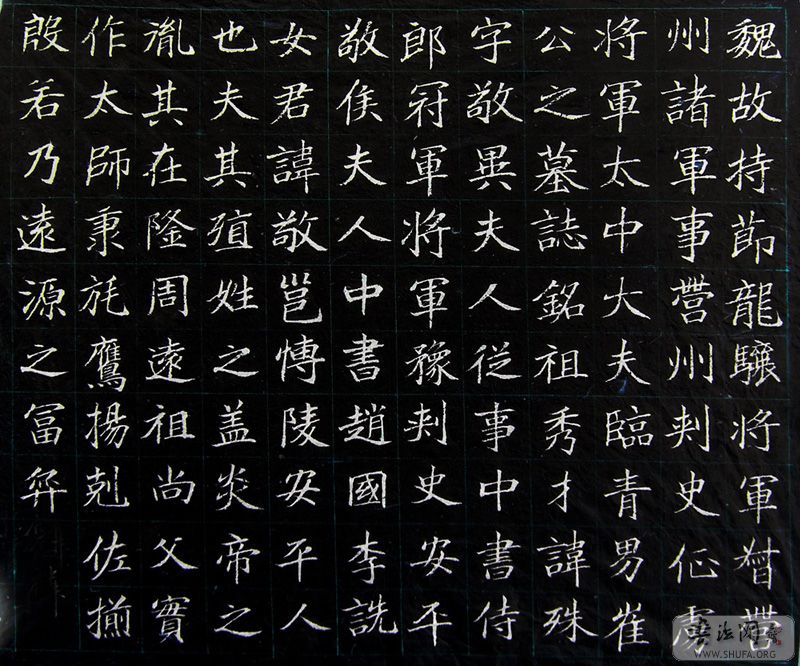 魏故持節龍驤将軍督營
州諸軍事營州刾史征虜
将軍太中大夫臨青男崔
公之墓誌銘祖秀才諱殊
字敬異夫人従事中書侍
郎冠軍将軍豫刾史安平
敬侯夫人中書趙國李詵
女君諱敬邕愽陵安平人
也夫其殖姓之盖炎帝之
胤其在隆周遠祖尚父實
作太師秉旄鷹揚剋佐揃
殷若乃遠源之冨弈
书法网
WWW.SHUFA.ORG